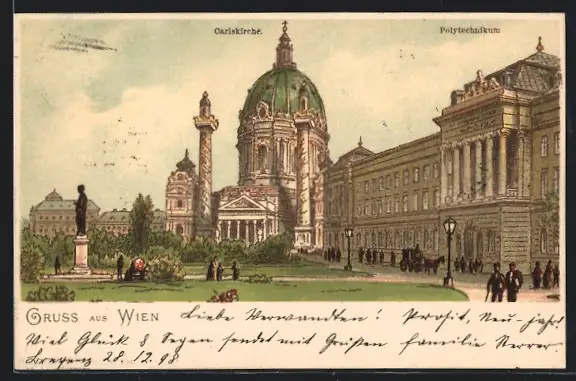 Carlskirche.
Polytechnikum
GRUSS AUS WIEN
Liebe Verwandten! Prosit, Neu-jahr!
Viel Glück & Segen sendet mit Grüßen familie
Bregenz 28.12.98